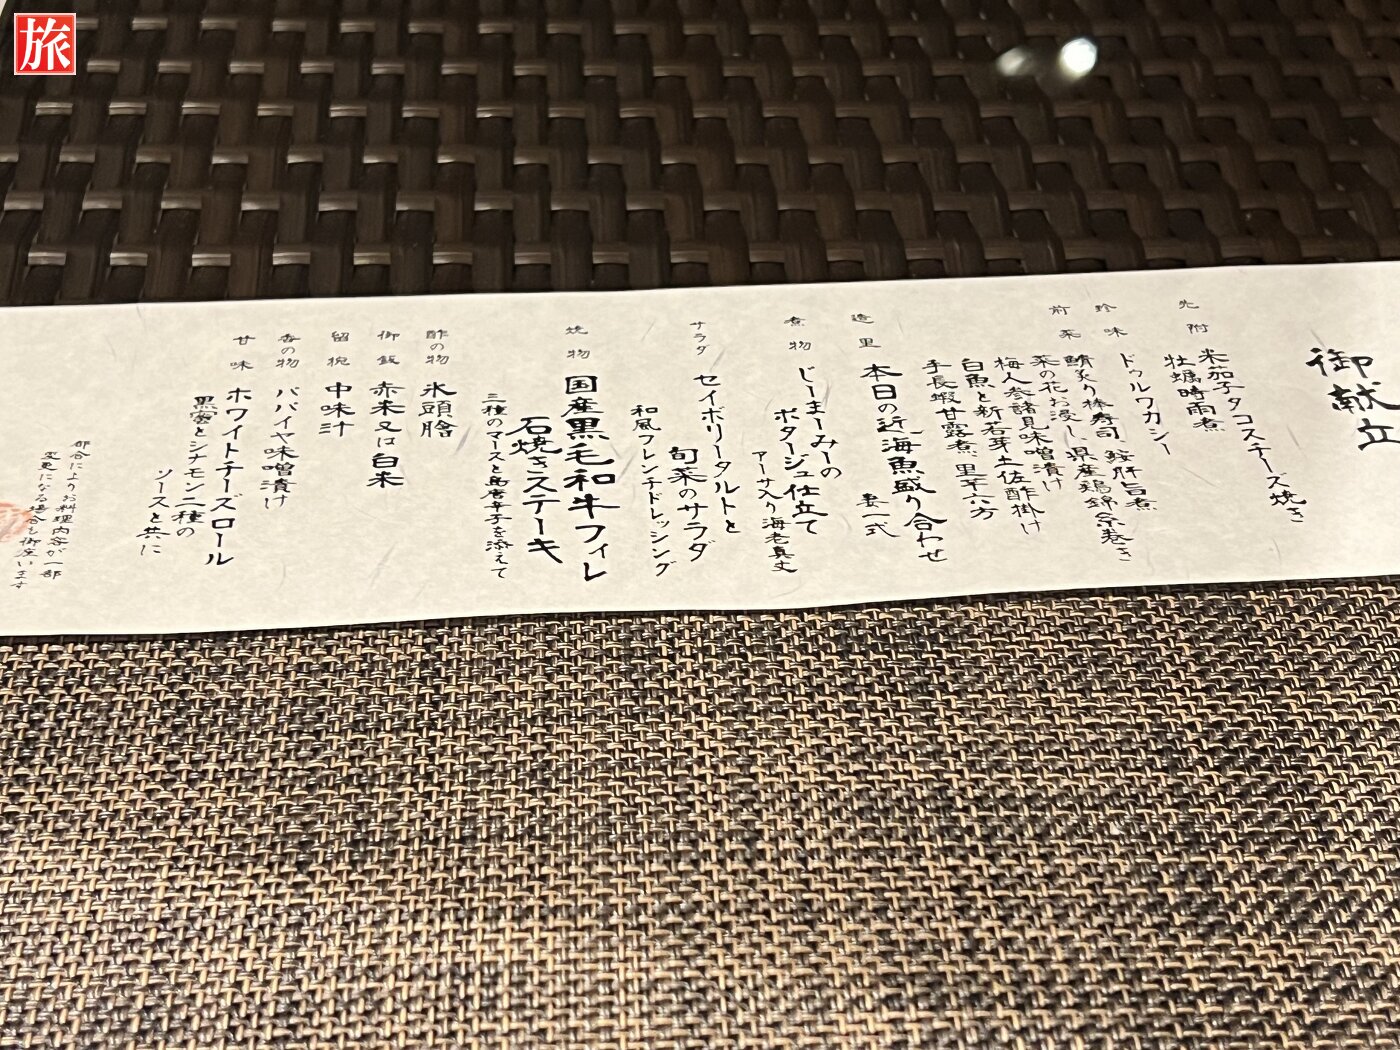 旅
御献立
先附
米茄子タコスチーズ焼き
牡蠣時雨煮
珍味
ドゥルワカシー
前菜
鯖炙り棒寿司 鮟肝旨煮
菜の花お浸し 県産鶏錦糸巻き
梅人参諸見味噌漬け
白魚と新若芽土佐酢掛け
手長蝦甘露煮 里芋六方
造里
本日の近海魚盛り合わせ
妻一式
煮物
じーまーみーの
ポタージュ仕立て
アーサ入り海老真丈
サラダ
セイボリータルトと
旬菜のサラダ
和風フレンチドレッシング
焼物
国産黒毛和牛フィレ
石焼きステーキ
三種のマースと島唐辛子を添えて
酢の物
氷頭膾
御飯
赤米又は白米
留椀
中味汁
香の物
パパイヤ味噌漬け
甘味
ホワイトチーズロール
黒蜜とシナモン二種の
ソースと共に
都合によりお料理内容が一部
変更になる場合も御座います